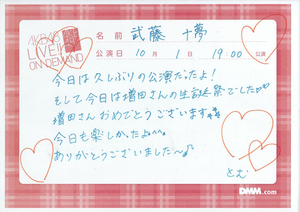 AKB48
LIVE!!
ON DEMAND
名前 武藤 十夢
公演日 10月1日 19:00 公演
今日は久しぶりの公演だったよ!
そして今日は増田さんの生誕祭でした♡♡
増田さんおめでとうございます
今日も楽しかったよ~
ありがとうございました~♪
とむ
DMM.com